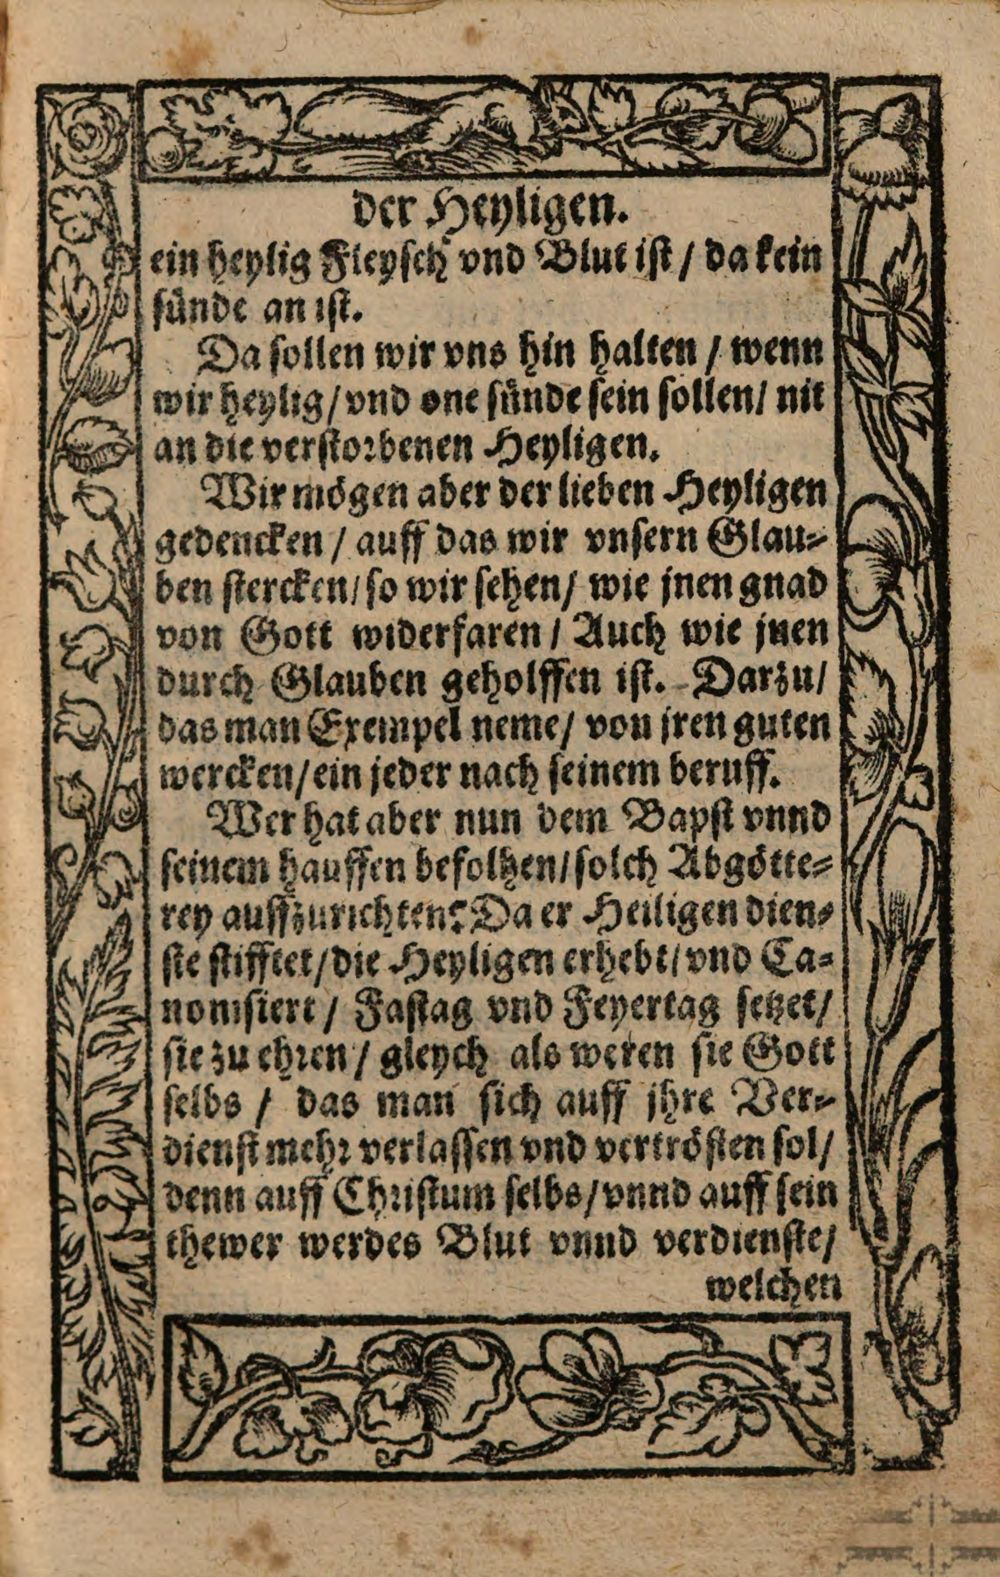 der Heyligen.
ein heylig Fleysch vnd Blut ist / da kein
sünde an ist.
Da sollen wir vns hin halten / wenn
wir heylig / vnd one sünde sein sollen / nit
an die verstorbenen Heyligen.
Wir mögen aber der lieben Heyligen
gedencken / auff das wir vnsern Glau-
ben stercken / so wir sehen / wie jnen gnad
von Gott widerfaren / Auch wie jnen
durch Glauben geholffen ist. Darzu /
das man Exempel neme / von jren guten
wercken / ein jeder nach seinem beruff.
Wer hat aber nun dem Bapst vnnd
seinem hauffen befolhen / solch Abgötte-
rey auffzurichten? Da er Heiligen dien-
ste stifftet / die Heyligen erhebt / vnd Ca-
nonisiert / Fastag vnd Feyertag setzet /
sie zu ehren / gleych als weren sie Gott
selbs / das man sich auff jhre Ver-
dienst mehr verlassen vnd vertrösten sol /
denn auff Christum selbs / vnnd auff sein
thewer werdes Blut vnnd verdienste /
welchen